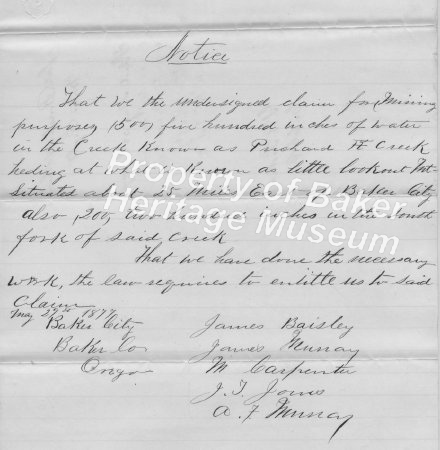 Notice
That We the undersigned claim for Mining
purposes 500, five hundred inches of water
in the Creek Known as Prichard Creek
heding at what is Known as little lookout Mt
Situated about 25 Miles East of Baker City
also 200, two hundred inches in the South
fork of said Creek
That we have done the necessary
work, the law requires to entitle us to said
Claim
May 29th
Baker City
Baker Co
Oregon
James Baisley
James Murray
M Carpenter
J. T. Jones
A. F Murray
Property of Baker
Heritage Museum